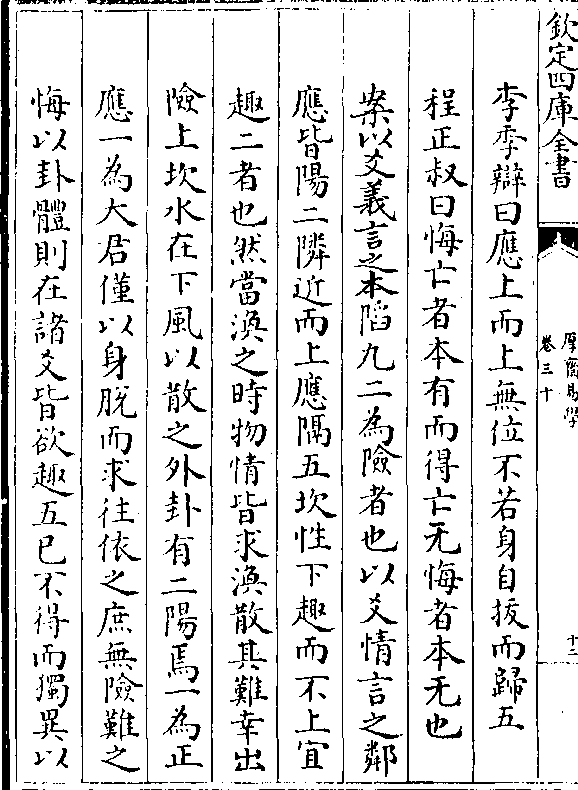 欽定四庫全書
厚齋易學
卷三十
十二
李季辯曰應上而上無位不若身自拔而歸五
程正叔曰悔亡者本有而得亡无悔者本无也
案以爻義言之本陷九二為險者也以爻情言之鄰
應皆陽二隣近而上應隔五坎性下趣而不上宜
趣二者也然當渙之時物情皆求渙散其難幸出
險上坎水在下風以散之外卦有二陽焉一為正
應一為大君僅以身脫而求往依之庶無險難之
悔以卦體則在諸爻皆欲趣五已不得而獨異以